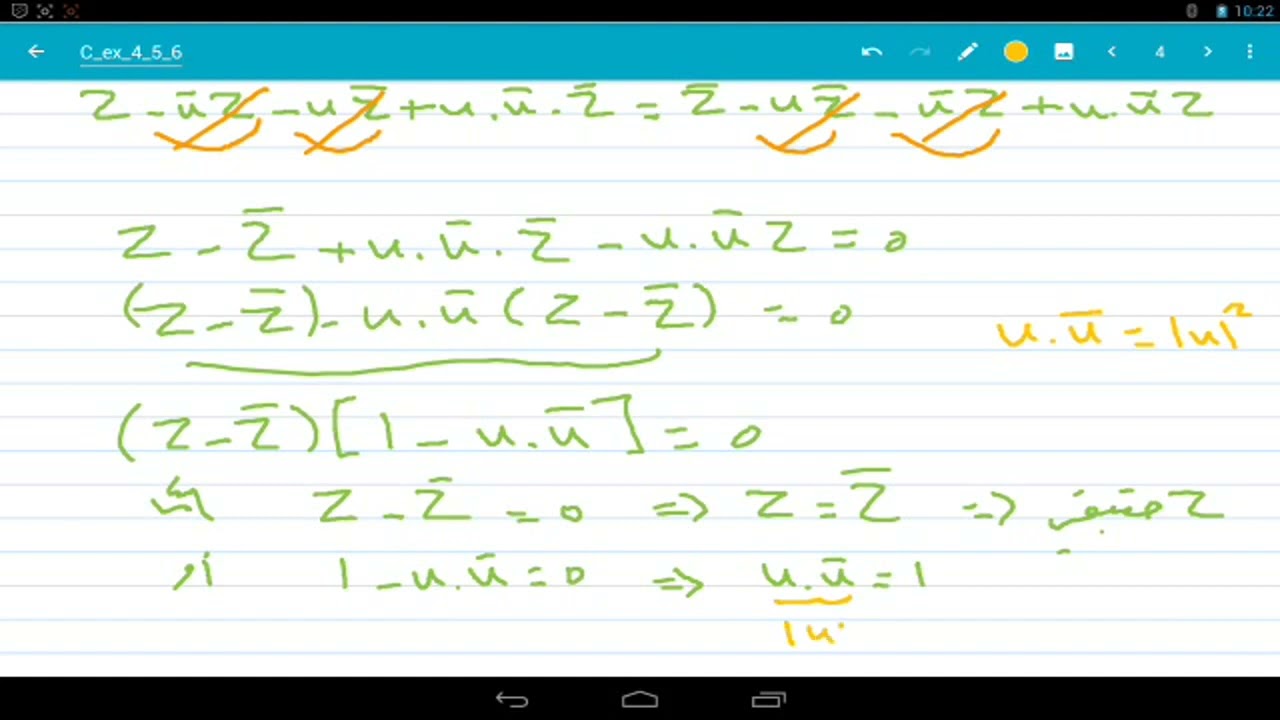 10:22
C_ex_4_5_6 4
z - u̅z - uz̅ + u.u̅.z̅ = z̅ - uz̅ - u̅z + u.u̅z
z - z̅ + u.u̅.z̅ - u.u̅z = 0
(z - z̅) - u.u̅(z - z̅) = 0
u.u̅ = |u|²
(z - z̅)[1 - u.u̅] = 0
إما z - z̅ = 0 ⇒ z = z̅ ⇒ z حقيقي
أو 1 - u.u̅ = 0 ⇒ u.u̅ = 1
|u